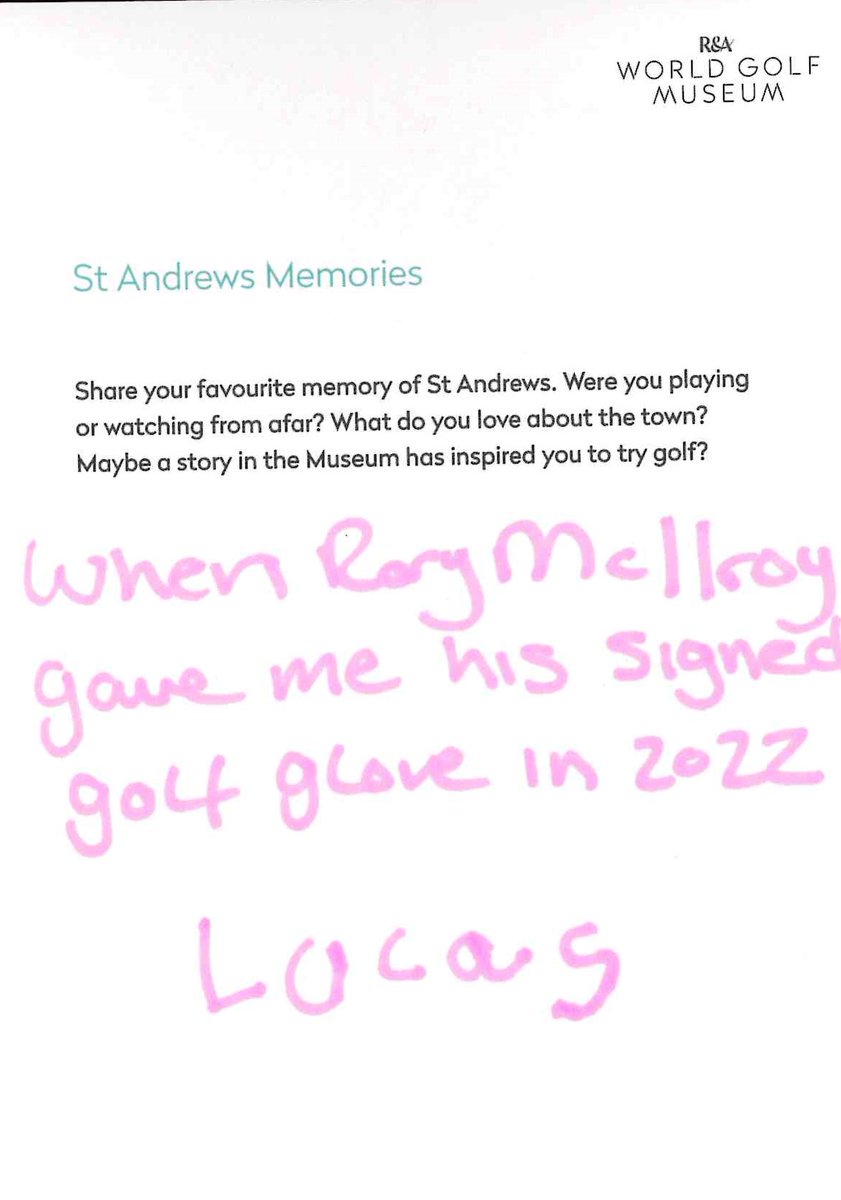 R&A
WORLD GOLF
MUSEUM
St Andrews Memories
Share your favourite memory of St Andrews. Were you playing
or watching from afar? What do you love about the town?
Maybe a story in the Museum has inspired you to try golf?
When Rory McIlroy
gave me his signed
golf glove in 2022
Lucas